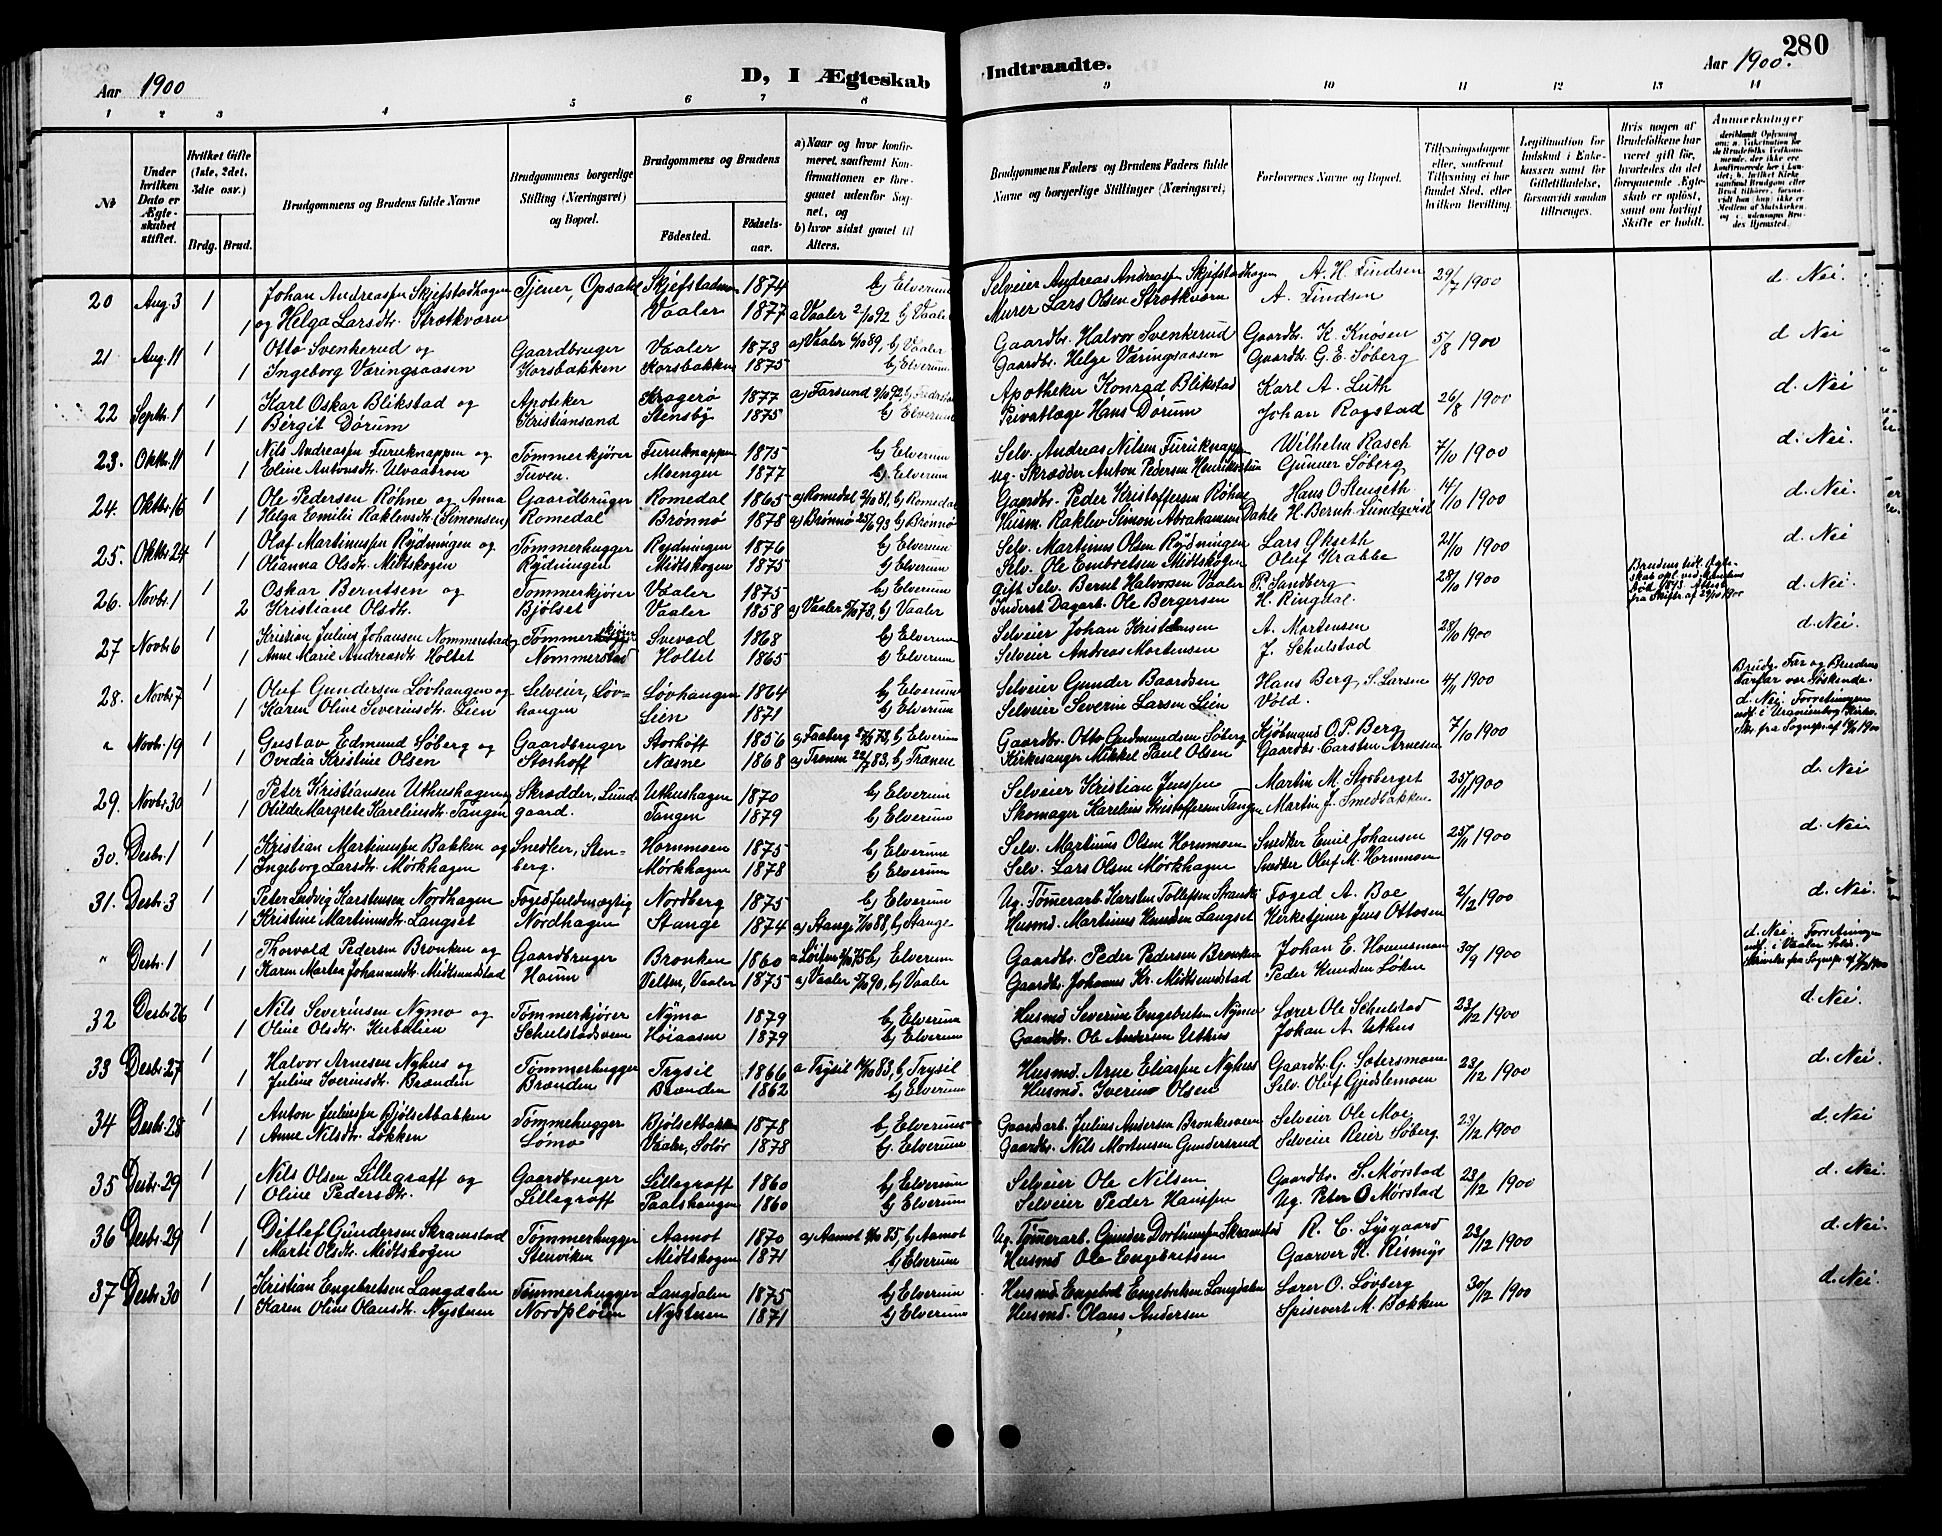 280
Aar 1900
D, I Ægteskab
Indtraadte.
Aar 1900.
1 2 3 4 5 6 7 8 9 10 11 12 13 14
No
Under hvilken Dato er Ægteskabet stiftet.
Hvilket Gifte (1ste, 2det, 3die osv.)
Brdg. Brud.
Brudgommens og Brudens fulde Navne
Brudgommens borgerlige Stilling (Næringsvei) og Bopæl.
Brudgommens og Brudens
Fødested.
Fødselsaar.
a) Naar og hvor konfirmeret, saafremt Konfirmationen er foregaaet udenfor Sognet, og
b) hvor sidst gaaet til Alters.
Brudgommens Faders og Brudens Faders fulde Navne og borgerlige Stillinger (Næringsvei)
Forlovernes Navne og Bopæl.
Tillysningsdagene eller, saafremt Tillysning ei har fundet Sted, efter hvilken Bevilling.
Legitimation for Indskud i Enkekassen samt for Giftetilladelse, forsaavidt saadan tiltrænges.
Hvis nogen af Brudefolkene har været gift før, hvorledes da det foregaaende Ægteskab er opløst, samt om lovligt Skifte er holdt.
Anmærkninger
20 Aug. 3 1 Johan Andreassen Skjefstadhagen Tjener, Opsahl Skjefstad 1874 b) Elverum Selveier Andreas Andreassen Skjefstadhagen A. H. Findsen 29/7 1900 d. Nei.
1 og Helga Larsdtr. Strætkværn Vaaler 1877 a Vaaler 2/10 92 b) Vaaler Murer Lars Olsen Strætkværn A. Findsen
21 Aug. 11 1 Otto Svenkerud og Gaardbruger Vaaler 1873 a) Vaaler 89, b) Vaaler Gaardbr. Halvor Svenkerud Gaardbr. K. Knøsen 5/8 1900 d. Nei
1 Ingeborg Væringsaasen Korsbakken Korsbakken 1875 b) Elverum Gaardbr. Helge Væringsaasen Gaardbr. G. E. Søberg
22 Septbr. 1 1 Karl Oskar Blikstad og Apoteker Kragerø 1877 a) Farsund 92 Apotheker Konrad Blikstad Karl A. Luth 26/8 1900 d. Nei
1 Bergit Dørum Kristiansand Stensby 1875 b) Elverum Privatlæge Hans Dørum Johan Rogstad
23. Oktbr. 11 1 Nils Andreassen Furuknappen og Tømmerkjører Furuknappen 1875 b) Elverum Selv. Andreas Nilsen Furuknappen Wilhelm Rasch 7/10 1900 d. Nei.
1 Eline Antonsdtr. Ulvaabroen Tuven. Moengen 1877 b) Elverum Ug. Skrædder Anton Pedersen Gunner Søberg
24. Oktbr. 16 1 Ole Pedersen Røhne og Anna Gaardbruger Romedal 1865 a) Romedal 2/10 81, b) Romedal Gaardbr. Peder Kristoffersen Røhne Hans O. Stenseth 14/10 1900 d. Nei.
1 Helga Emilie Raklevsdtr. (Simonsen) Romedal Brønnø 1878 a) Brønnø 25/6 93 b) Brønnø Husm. Raklev Simon Abrahamsen Dahle H. Bernh. Lundqvist
25. Oktbr. 24 1 Olaf Martinussen Rydningen og Tømmerhugger Rydningen 1876 b) Elverum Selv. Martinus Olsen Rydningen Lars Økseth 21/10 1900 d. Nei
1 Oleanna Olsdtr. Midtskogen Rydningen Midtskogen 1875 b) Elverum Selv. Ole Embretsen Midtskogen Oluf Krabbe
26. Novbr. 1 1 Oskar Berntsen og Tømmerkjører Vaaler 1875 b) Elverum Gift Selv. Bernt Halvorsen Vaaler P. Sandberg 28/10 1900 d. Nei
2 Kristiane Olsdtr. Bjølset Vaaler 1858 a) Vaaler 73, b) Vaaler Inderst Dagarb. Ole Bergersen H. Ringdal.
27 Novbr. 6 1 Kristian Julius Johansen Nommerstad og Tømmerkjører Svevad 1868 b) Elverum Selveier Johan Kristiansen A. Mortensen 28/10 1900 d. Nei.
1 Anne Marie Andreasdtr. Holtet Nommerstad Holtet 1865 b) Elverum Selveier Andreas Mortensen J. Schulstad
28. Novbr. 7 1 Oluf Gundersen Løvhaugen og Selveier, Løvhaugen Løvhaugen 1864 b) Elverum Selveier Gunder Baardsen Hans Berg, S. Larsen 4/11 1900 Brudg. Far og Brudens Farfar var Søskende.
1 Karen Oline Severinsdtr. Lien Lien 1871 b) Elverum Selveier Severin Larsen Lien Vold.
" Novbr. 19 1 Gustav Edmund Søberg og Gaardbruger Storhoff 1856 a) Faaberg 73, b) Elverum Gaardbr. Otto Gudmundsen Søberg Kjøbmand O. P. Berg 7/10 1900 d. Nei. Forretningen udf. i Uranienborg Kirke.
1 Ovedia Kristine Olsen Storhoff Næsne 1868 a) Trænen 22/7 83, b) Trænen Kirkesanger Mikkel Paul Olsen Gaardbr. Carsten Arnesen
29. Novbr. 30 1 Peter Kristiansen Uthushagen og Skrædder, Lundgaard. Uthushagen 1870 b) Elverum Selveier Kristian Jenssen Martin M. Storberget 25/11 1900 d. Nei
1 Otilde Margrete Kareliusdtr. Tangen Tangen 1879 b) Elverum Skomager Karelius Kristoffersen Tangen Martin J. Smedbakken.
30. Desbr. 1 1 Kristian Martinussen Bakken og Snedker, Stenberg. Hornmoen 1875 b) Elverum Selv. Martinus Olsen Hornmoen Snedker Emil Johansen 25/11 1900 d. Nei.
1 Ingeborg Larsdtr. Mørkhagen Mørkhagen 1878 b) Elverum Selv. Lars Olsen Mørkhagen Snedker Oluf M. Hornmoen
31. Desbr. 3 1 Peter Ludvig Karstensen Nordhagen Fogedfuldmægtig Nordberg 1875 b) Elverum Ug. Tømerarb. Karsten Tollefsen Strande Foged A. Boe 2/12 1900 d. Nei.
1 Kristine Martinusdtr. Langset Nordhagen Stange 1874 a) Stange 88, b) Stange Husmd. Martinus Knudsen Langset Kirketjener Jens Ottosen
" Desbr. 1 1 Thorvald Pedersen Bronken og Gaardbruger Bronken 1860 a Løiten 75 b, Elverum Gaardbr. Peder Pedersen Bronken Johan E. Hommemoen 30/9 1900 d. Nei. Forretningen udf. i Vaaler Solør.
1 Karen Martea Johannesdtr. Midtsundstad Haum Velten, Vaaler 1875 a) Vaaler 90, b) Vaaler Gaardbr. Johannes Kr. Midtsundstad Peder Knudsen Løken
32 Desbr. 26 1 Nils Severinsen Nymo og Tømmerkjører Nymo 1879 b) Elverum Husmd. Severin Engebretsen Nymo Lærer Ole Schulstad 23/12 1900 d. Nei.
1 Oline Olsdtr. Kirbølien Schulstadsveen Høiaasen 1879 b) Elverum Gaardbr. Ole Andersen Uthus Johan A. Uthus
33 Desbr. 27 1 Halvor Arnesen Nyhus og Tømmerhugger Trysil 1866 a Trysil 83, b) Trysil Husmd. Arne Eliassen Nyhus Gaardbr. G. Sætersmoen 23/12 1900 d. Nei.
1 Juline Iverinsdtr. Brænden Brænden Brænden 1862 b) Elverum Husmd. Iverin Olsen Selv. Oluf Gjidlemoen
34 Desbr. 28 1 Anton Juliussen Bjølsetbakken Tømmehugger Bjølsetbakken 1878 b) Elverum Gaardarb. Julius Andersen Bronkeveen Selveier Ole Moe 23/12 1900 d. Nei
1 Anne Nilsdtr. Løkken Lømo Vaaler, Solør 1878 b). Elverum Gaardbr. Nils Mortensen Gundersrud Selveier Reier Søberg
35 Desbr. 29 1 Nils Olsen Lillegraff og Gaardbruger Lillegraff 1860 b) Elverum Selveier Ole Nilsen Gaardbr. S. Mørstad 23/12 1900 d. Nei
1 Oline Pedersdtr. Lillegraff Paalshaugen 1860 b) Elverum Selveier Peder Hanssen Ug. Peter O Mørstad
36 Desbr. 29 1 Ditlef Gundersen Skramstad Tømmerhugger Aamot 1870 a) Aamot 85, b) Aamot Ug. Tømerarb. Gunder Dortinussen Skramstad R. C. Lysgaard 23/12 1900 d. Nei.
1 Marte Olsdtr. Midtskogen Stenviken Midtskogen 1871 b) Elverum Husmd Ole Engebretsen Gaarver K. Rismyr
37 Desbr. 30 1 Kristian Engebretsen Langdalen Tømmerhugger Langdalen 1875 b) Elverum Husmd Engebret Engebretsen Langdalen Lærer O. Løvberg 30/12 1900 d. Nei.
1 Karen Oline Olausdtr. Nystuen Nordpløien Nystuen 1871 b) Elverum Husmd. Olaus Andersen Spisevert M. Bakken